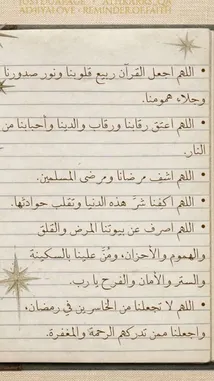 • اللهم اجعل القرآن ربيع قلوبنا ونور صدورنا
وجلاء همومنا.
• اللهم اعتق رقابنا ورقاب والدينا وأحبابنا من
النار.
• اللهم اشفِ مرضانا ومرضى المسلمين.
• اللهم اكفنا شرّ هذه الدنيا وتقلب حوادثها.
• اللهم اصرف عن بيوتنا المرض والقلق
والهموم والأحزان، ومُنّ علينا بالسكينة
والستر والأمان والفرح يا رب.
• اللهم لا تجعلنا من الخاسرين في رمضان،
واجعلنا ممن تدركهم الرحمة والمغفرة.